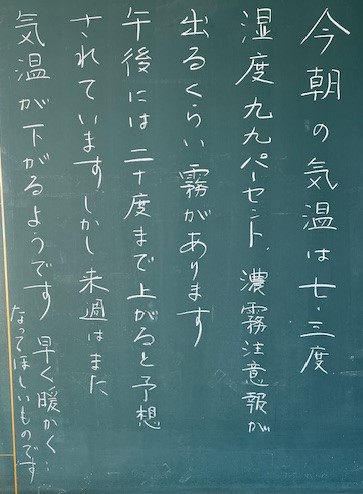 今朝の気温は七・三度
湿度九九パーセント、濃霧注意報が
出るくらい霧があります
午後には二十度まで上がると予想
されています。しかし来週はまた
気温が下がるようです 早く暖かく…
なってほしいものです